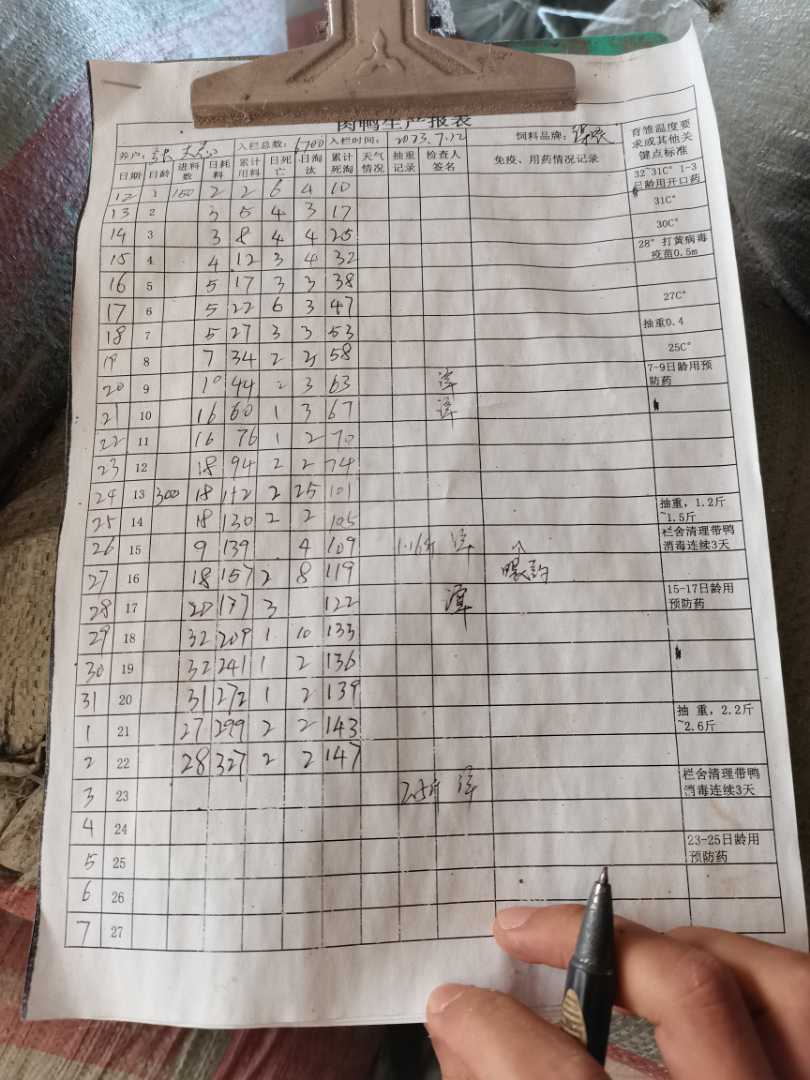 肉鸭生产报表
养户: 入栏总数: 6700 入栏时间: 2023.7.12 饲料品牌: 育雏温度要求或其他关键点标准
日期 日龄 进料数 日耗料 累计用料 日死亡 日淘汰 累计死淘 天气情况 抽重记录 检查人签名 免疫、用药情况记录
12 1 150 2 2 6 4 10 32~31C° 1-3日龄用开口药
13 2 3 5 4 3 17 31C°
14 3 3 8 4 4 25 30C°
15 4 4 12 3 4 32 28° 打黄病毒疫苗0.5m
16 5 5 17 3 3 38
17 6 5 22 6 3 47 27C°
18 7 5 27 3 3 53 抽重0.4
19 8 7 34 2 2 58 25C°
20 9 10 44 2 3 63 7-9日龄用预防药
21 10 16 60 1 3 67
22 11 16 76 1 2 70
23 12 18 94 2 2 74
24 13 300 18 112 2 25 101
25 14 18 130 2 2 105 抽重, 1.2斤~1.5斤
26 15 9 139 4 109 1.16斤 栏舍清理带鸭消毒连续3天
27 16 18 157 2 8 119
28 17 20 177 3 122 15-17日龄用预防药
29 18 32 209 1 10 133
30 19 32 241 1 2 136
31 20 31 272 1 2 139
1 21 27 299 2 2 143 抽 重, 2.2斤~2.6斤
2 22 28 327 2 2 147
3 23 栏舍清理带鸭消毒连续3天
4 24
5 25 23-25日龄用预防药
6 26
7 27